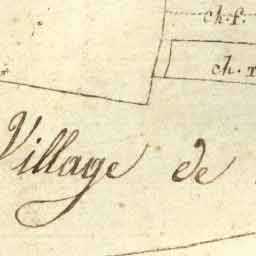 ch. f.
ch.
Village de